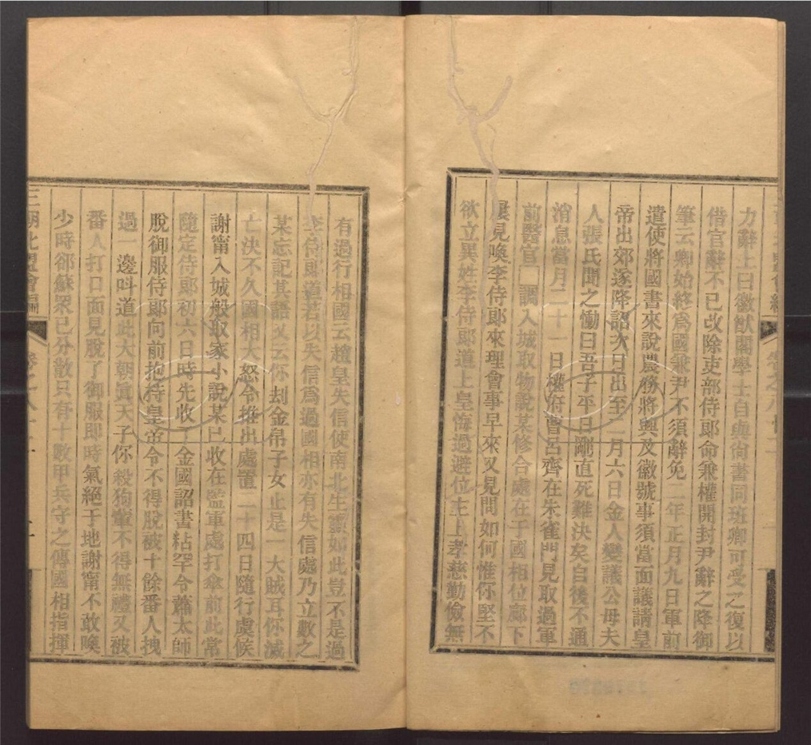 力辭上曰徽猷閣學士自與尚書同班卿可受之復以
借官辭不已改除吏部侍郎命兼權開封尹辭之降御
筆云卿始終爲國兼尹不須辭免二年正月九日軍前
遣使將國書來說農務將興及徽號事須當面議請皇
帝出郊遂降詔次日出至二月六日金人變議公母夫
人張氏聞之慟曰吾子平日剛直死難決矣自後不通
消息當月二十一日樓府曾呂齊在朱雀門見取過軍
前醫官 調入城取物說某修合處在于國相位廊下
屢見喚李侍郎來理會事早來又見問如何惟你堅不
欲立異姓李侍郎道上皇悔過避位主上孝慈勤儉無
有過行相國云趙皇失信使南北生靈如此豈不是過
李侍郎道若以失信爲過國相亦有失信處乃立數之
某忘記其語又云你刦金帛子女止是一大賊耳你滅
亡決不久國相大怒令推出處置二十四日隨行虞候
謝甯入城般取家小說某已收在監軍處打傘前此常
隨定侍郎初六日時先收了金國詔書粘罕令蕭太師
脫御服侍郎向前抱持皇帝令不得脫被十餘番人拽
過一邊呌道此大朝眞天子你殺狗輩不得無禮又被
番人打口面見脫了御服即時氣絕于地謝甯不敢喚
少時卻蘇眾已分散只有十數甲兵守之傳國相指揮
三朝北盟會編